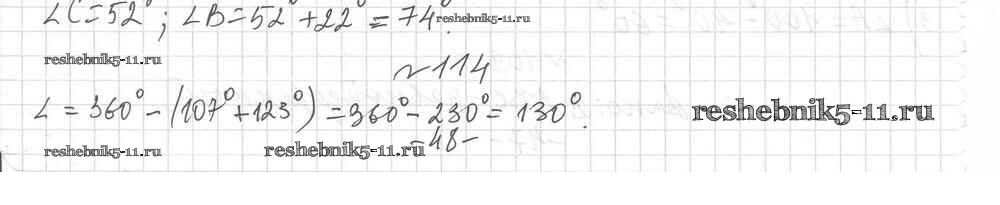 ∠C=52°; ∠B=52°+22°=74°.
reshebnik5-11.ru
reshebnik5-11.ru
~114
∠=360°-(107°+123°)=360°-230°=130°.
reshebnik5-11.ru
-48-
reshebnik5-11.ru
reshebnik5-11.ru